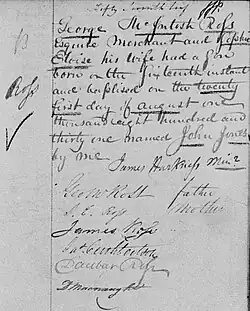 Fifty Seventh
George McIntosh Ross
Esquire Merchant and Sophie
Eloise his wife had a son
born on the fifteenth instant
and baptised on the twenty
Ross
first day of August one
thousand eight hundred and
thirty one named John Jones
by me
James Harkness Minr
Geo M Ross Father
S. E. Ross Mother
James Ross
Ross